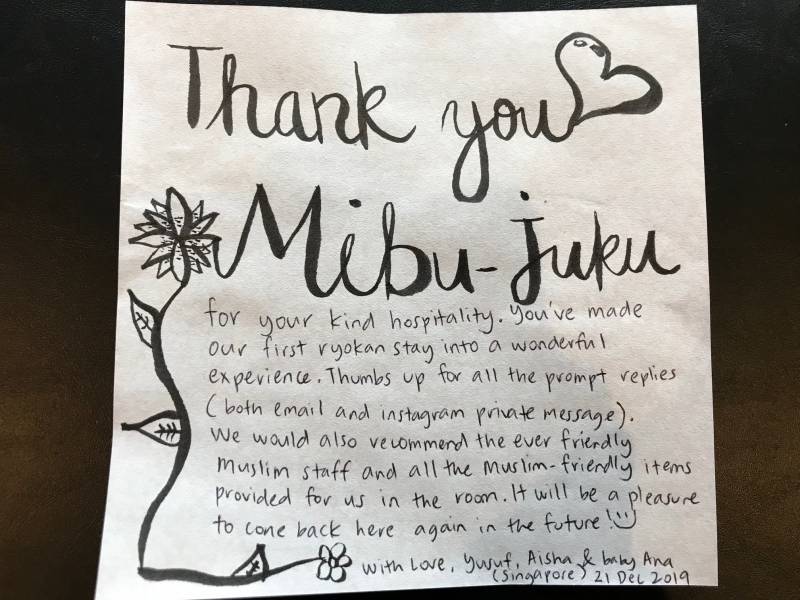 Thank you
Mibu-juku
for your kind hospitality. You've made
our first ryokan stay into a wonderful
experience. Thumbs up for all the prompt replies
(both email and instagram private message).
We would also recommend the ever friendly
Muslim staff and all the Muslim-friendly items
provided for us in the room. It will be a pleasure
to come back here again in the future!
with Love, Yusuf, Aisha & baby Ana
(Singapore) 21 Dec 2019